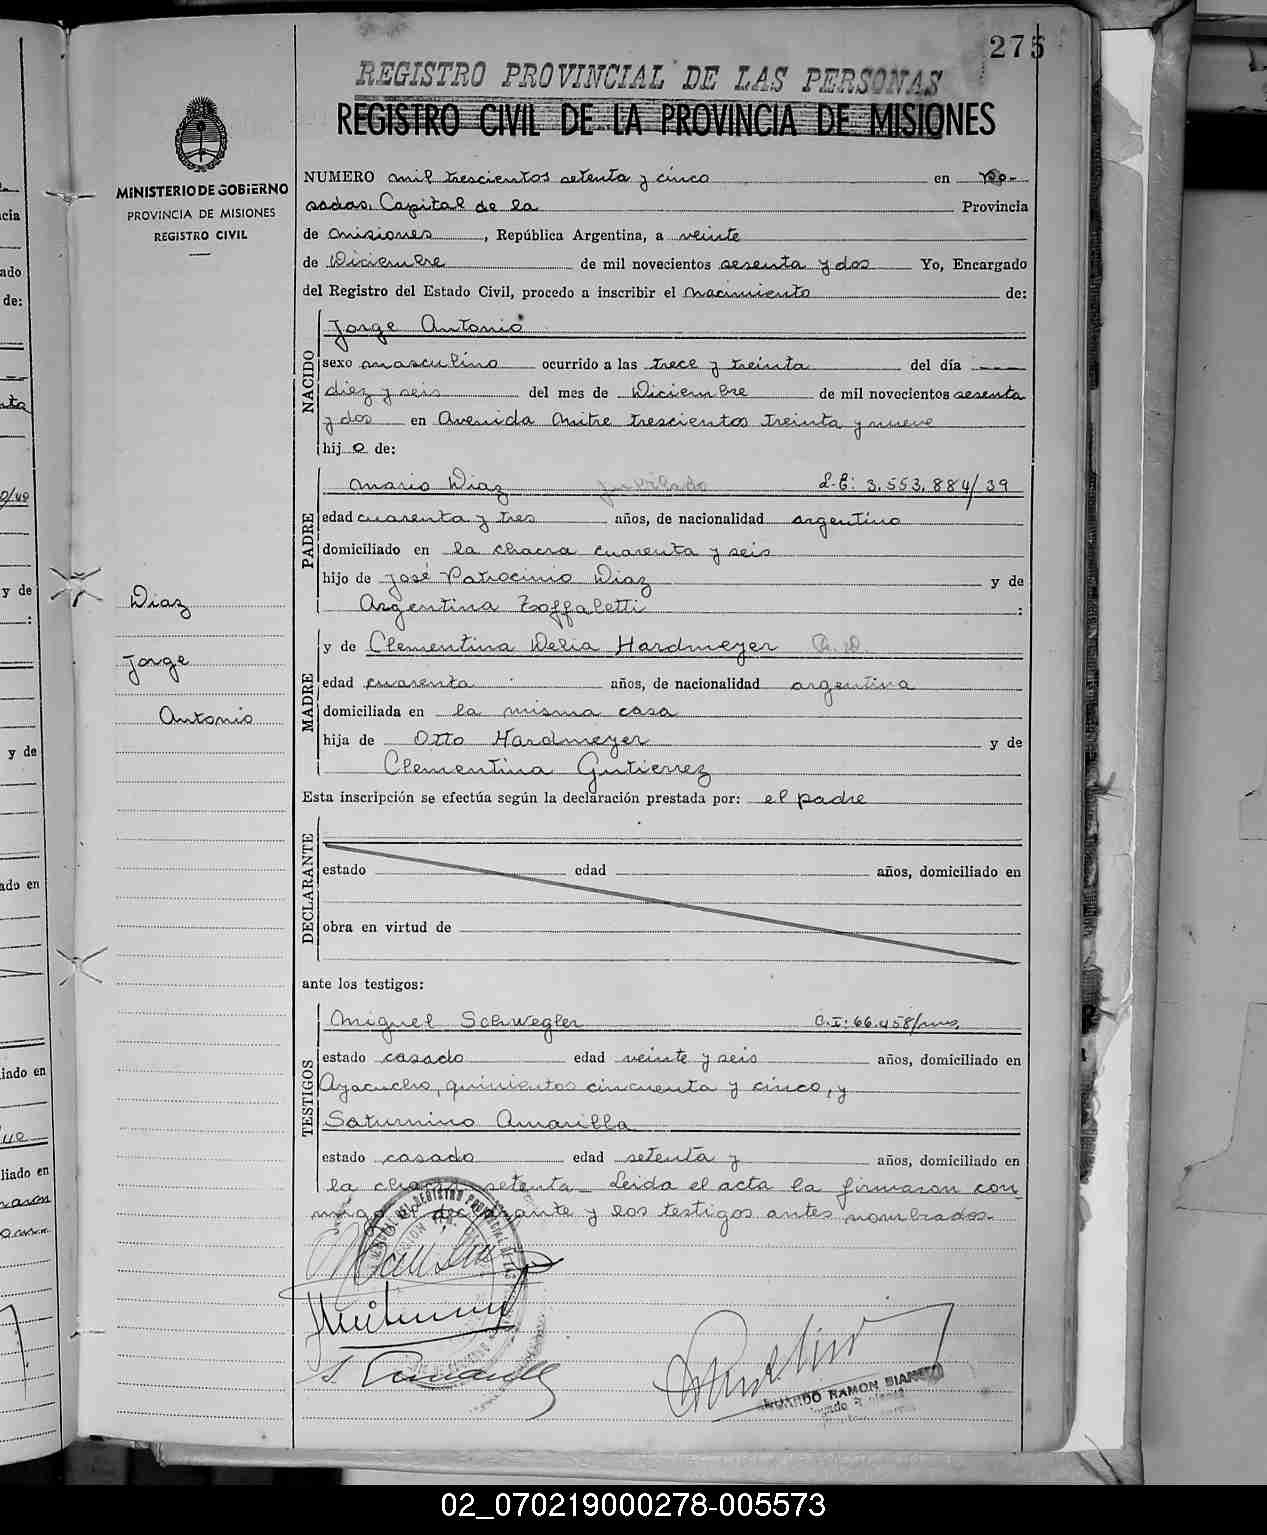 275
REGISTRO PROVINCIAL DE LAS PERSONAS
REGISTRO CIVIL DE LA PROVINCIA DE MISIONES
MINISTERIO DE GOBIERNO
PROVINCIA DE MISIONES
REGISTRO CIVIL
NUMERO mil trescientos setenta y cinco en Po-
sadas, Capital de la Provincia
de Misiones, República Argentina, a veinte
de Diciembre de mil novecientos sesenta y dos Yo, Encargado
del Registro del Estado Civil, procedo a inscribir el nacimiento de:
NACIDO
Jorge Antonio
sexo masculino ocurrido a las trece y treinta del día
diez y seis del mes de Diciembre de mil novecientos sesenta
y dos en Avenida Mitre trescientos treinta y nueve
hijo de:
PADRE
Mario Diaz jubilado L.E: 3.553.884/39
edad cuarenta y tres años, de nacionalidad argentino
domiciliado en la chacra cuarenta y seis
hijo de José Patrocinio Diaz y de
Argentina Zoffaletti :
MADRE
y de Clementina Delia Hardmeyer Q. D.
edad cuarenta años, de nacionalidad argentina
domiciliada en la misma casa
hija de Otto Hardmeyer y de
Clementina Gutierrez
Esta inscripción se efectúa según la declaración prestada por: el padre
DECLARANTE
estado edad años, domiciliado en
obra en virtud de
ante los testigos:
TESTIGOS
Miguel Schwegler C.I: 66.458/mns.
estado casado edad veinte y seis años, domiciliado en
Ayacucho, quinientos cincuenta y cinco, y
Saturnino Amarilla
estado casado edad setenta y años, domiciliado en
la chacra setenta - Leida el acta la firmaron con-
migo el declarante y los testigos antes nombrados.
Diaz
Jorge
Antonio
S. Amarilla
RAMON
02_070219000278-005573